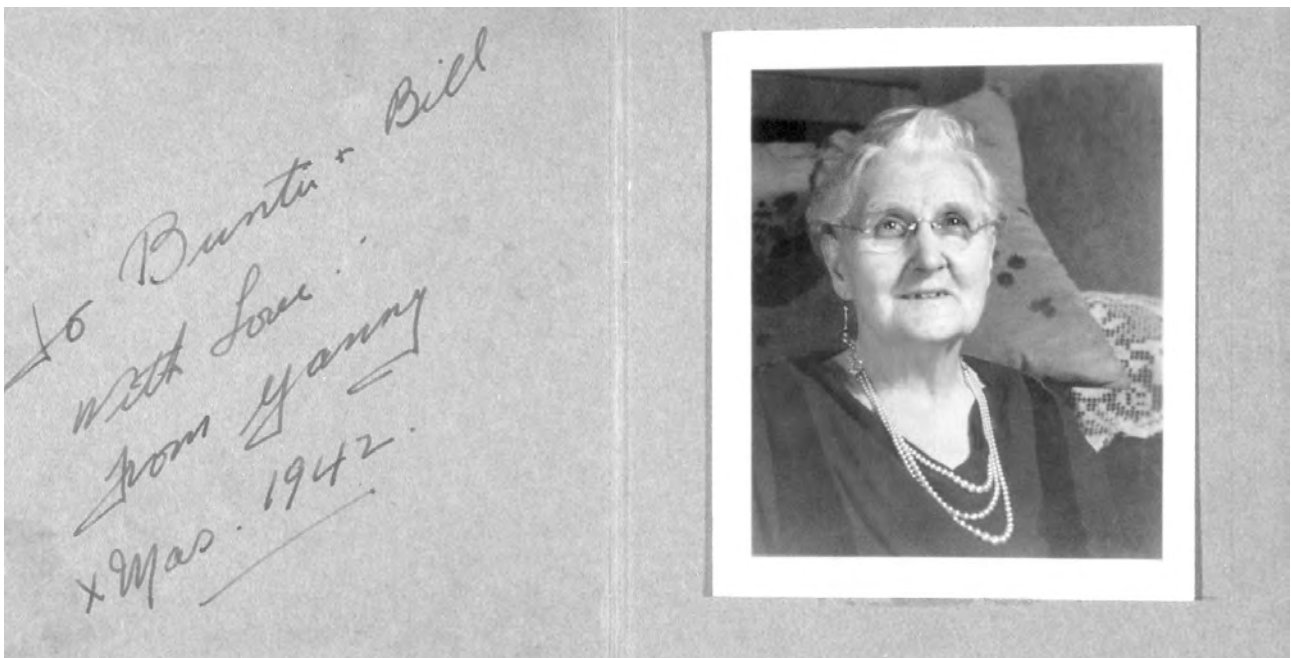 To Buntie + Bill
With Love.
from Yanny
xMas. 1942.